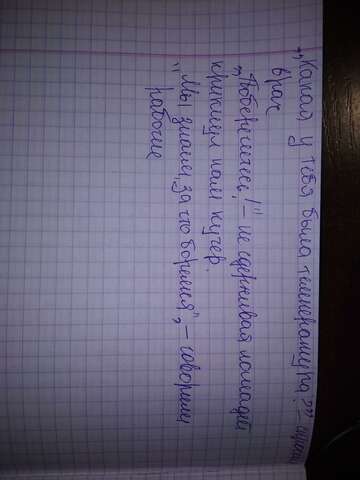 „Какая у тебя была температура?" –
врач
„Поберегитесь!" – не сдерживая лошадей
крикнул нам кучер.
"Мы знаем, за что боремся", – говорили
рабочие